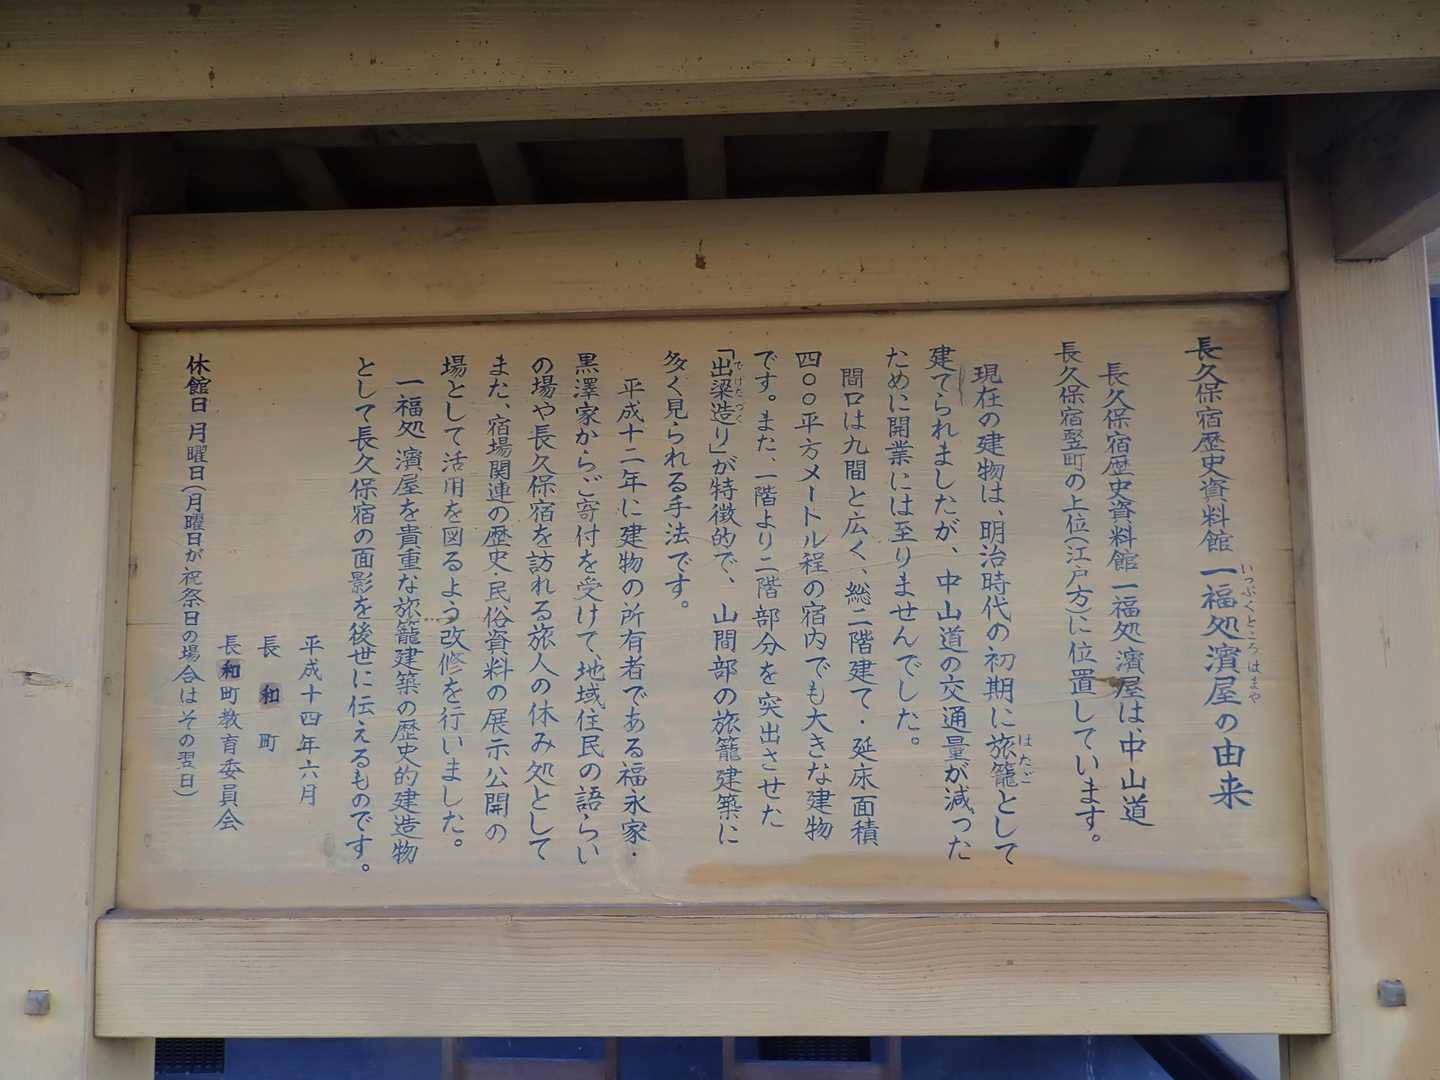 長久保宿歴史資料館 一福処濱屋の由来
いっぷくところはまや
長久保宿歴史資料館 一福処濱屋は、中山道
長久保宿竪町の上位(江戸方)に位置しています。
現在の建物は、明治時代の初期に旅籠として
はたご
建てられましたが、中山道の交通量が減った
ために開業には至りませんでした。
間口は九間と広く、総二階建て・延床面積
四〇〇平方メートル程の宿内でも大きな建物
です。また、一階より二階部分を突出させた
「出梁造り」が特徴的で、山間部の旅籠建築に
でけたづく
多く見られる手法です。
平成十二年に建物の所有者である福永家・
黒澤家からご寄付を受けて、地域住民の語らい
の場や長久保宿を訪れる旅人の休み処として
また、宿場関連の歴史・民俗資料の展示公開の
場として活用を図るよう改修を行いました。
一福処濱屋を貴重な旅籠建築の歴史的建造物
として長久保宿の面影を後世に伝えるものです。
平成十四年六月
長和町
長和町教育委員会
休館日 月曜日(月曜日が祝祭日の場合はその翌日)